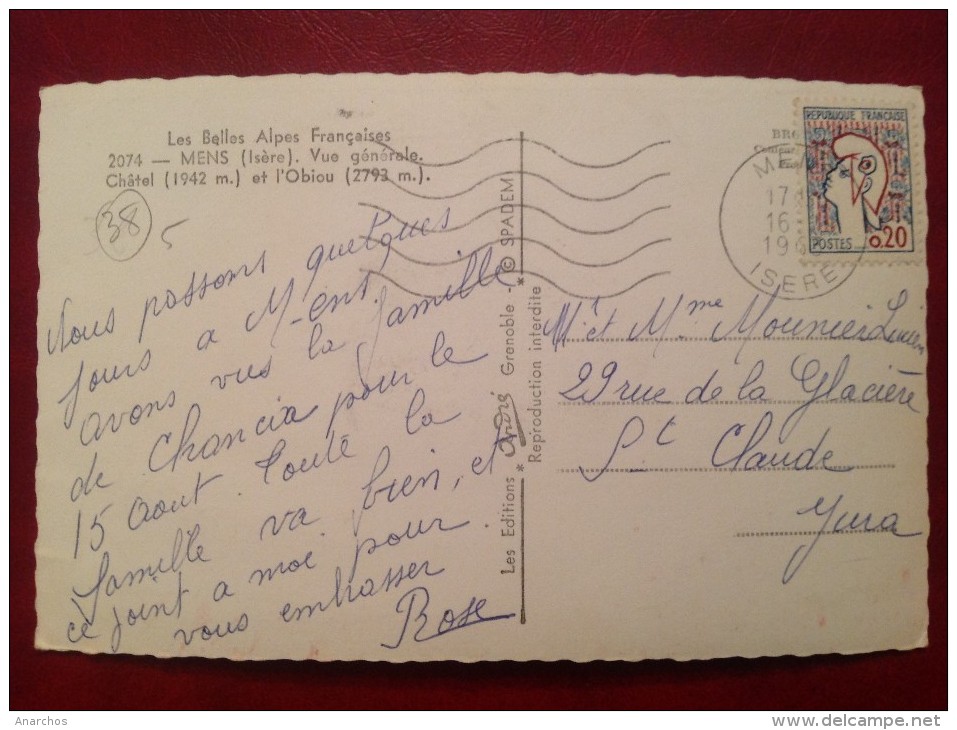 Les Belles Alpes Françaises
2074 — MENS (Isère). Vue générale.
Châtel (1942 m.) et l'Obiou (2793 m.).
38
5
Nous passons quelques
jours a M-ens.
avons vus la famille
de Chancia pour le
15 Aout. Toute la
famille va bien, et
ce joint a moi pour
vous embrasser
Rose
Les Editions * André Grenoble - © SPADEM
* Reproduction interdite
REPUBLIQUE FRANÇAISE
POSTES 0,20
ME
17
16
19
ISERE
Mr et Mme Mounier Lucien
29 rue de la Glacière
St Claude
Jura
Anarchos
delcampe.net